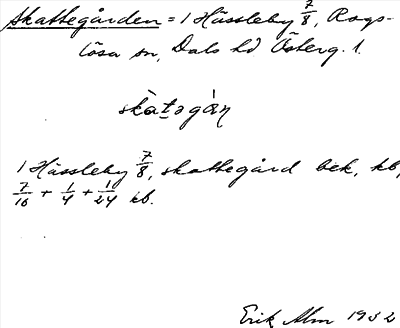 Skattegården = 1 Hässleby 7/8, Rogs-
lösa sn, Dals hd Österg. l.
skàtəgán
1 Hässleby 7/8, skattegård bek, kb,
7/16 + 1/4 + 1/24 kb.
Erik Alm 1932